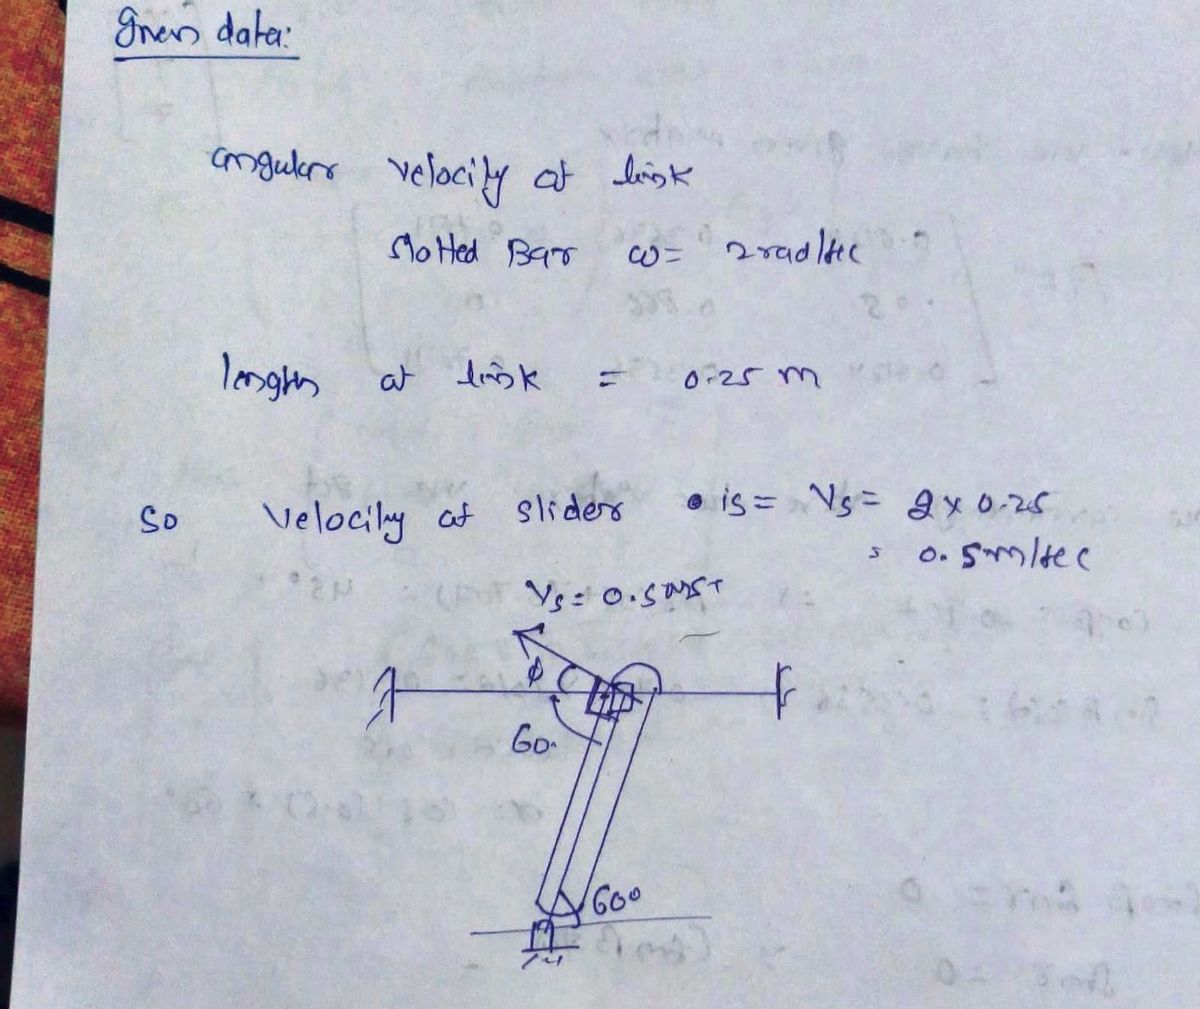 Given data:
angular velocity of link
slotted Bar ω= 2rad/sec
length of link = 0.25 m
So velocity of slider is = Vs= 2 x 0.25
= 0.5m/sec
Vs= 0.5 ms-1
φ
60
60°